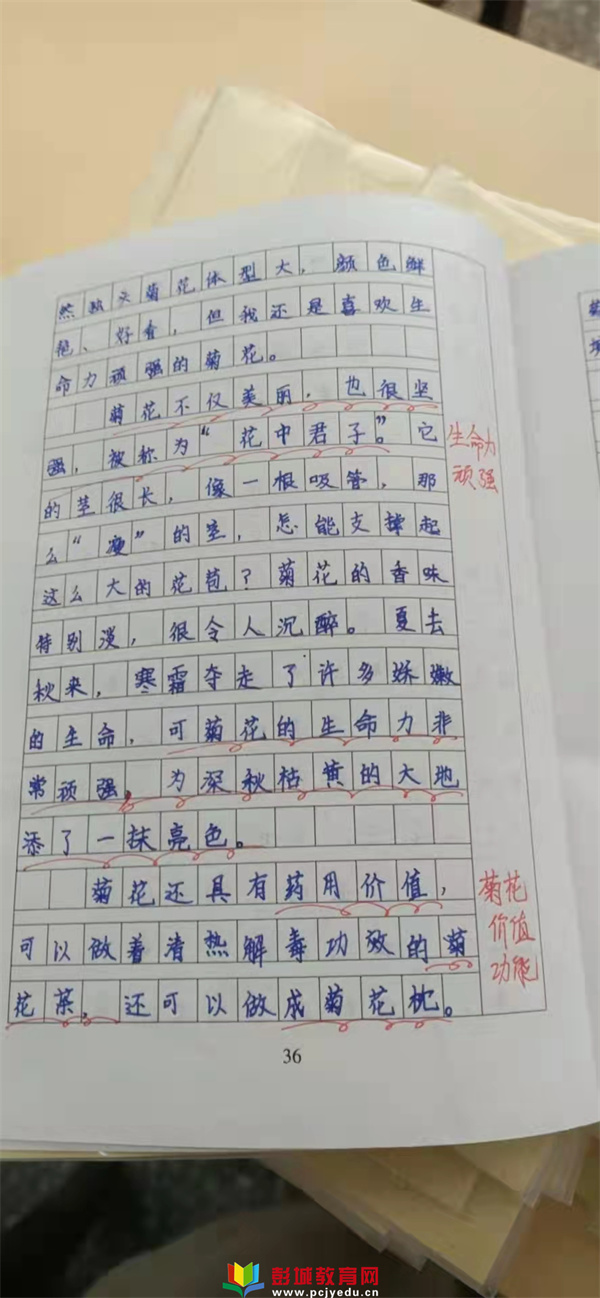 然独头菊花体型大，颜色鲜
艳、好看，但我还是喜欢生
命力顽强的菊花。
菊花不仅美丽，也很坚
强，被称为“花中君子”。它
生命力
顽强
的茎很长，像一根吸管，那
么“瘦”的茎，怎能支撑起
这么大的花苞？菊花的香味
特别淡，很令人沉醉。夏去
秋来，寒霜夺走了许多娇嫩
的生命，可菊花的生命力非
常顽强，为深秋枯黄的大地
添了一抹亮色。
菊花还具有药用价值，
菊花
价值
功能
可以做着清热解毒功效的菊
花茶，还可以做成菊花枕。
36
彭城教育网
www.pcjyedu.cn